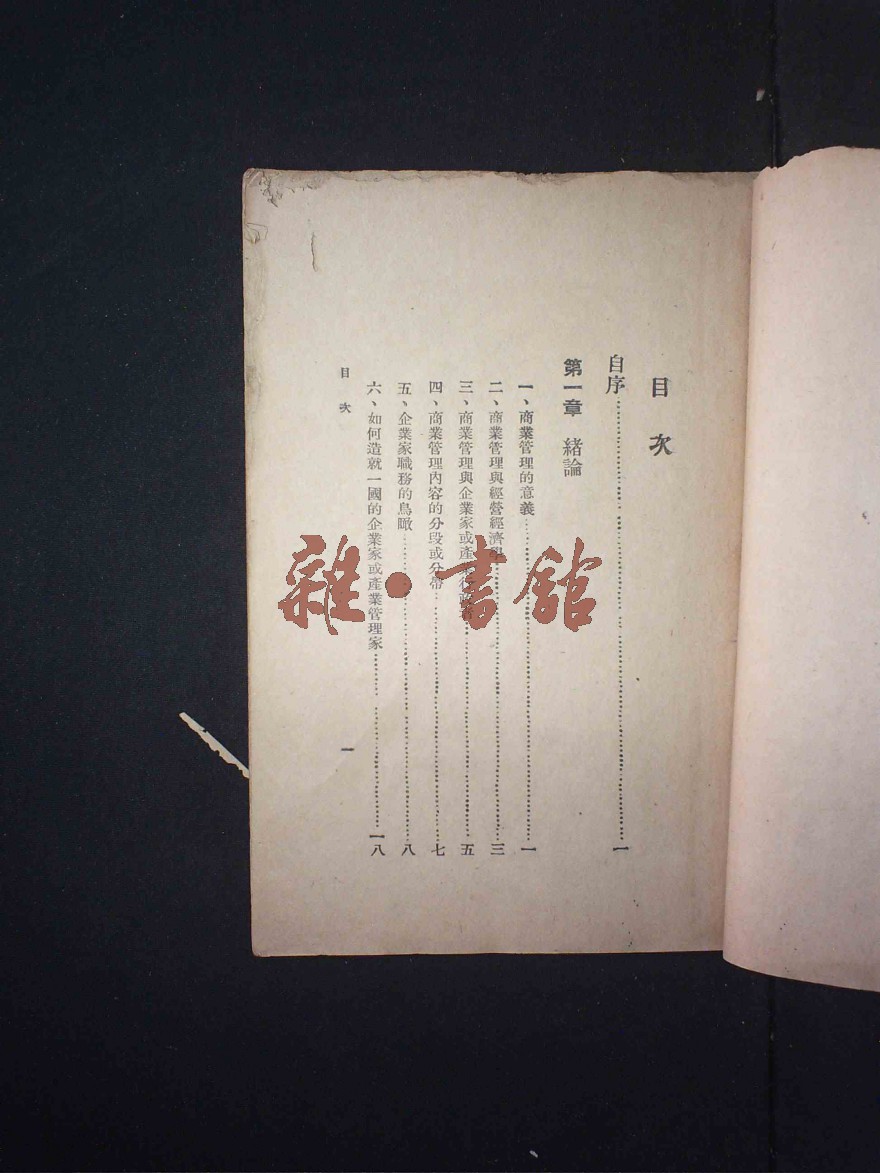 目次
自序⋯⋯⋯⋯⋯⋯⋯⋯⋯⋯⋯⋯一
第一章 緒論
一、商業管理的意義⋯⋯⋯⋯⋯⋯⋯⋯一
二、商業管理與經營經濟學⋯⋯⋯⋯⋯⋯三
三、商業管理與企業家或產業行政者⋯⋯⋯⋯五
四、商業管理內容的分段或分帶⋯⋯⋯⋯⋯七
五、企業家職務的鳥瞰⋯⋯⋯⋯⋯⋯⋯⋯八
六、如何造就一國的企業家或產業管理家⋯⋯⋯一八
目次 一
雜·書館